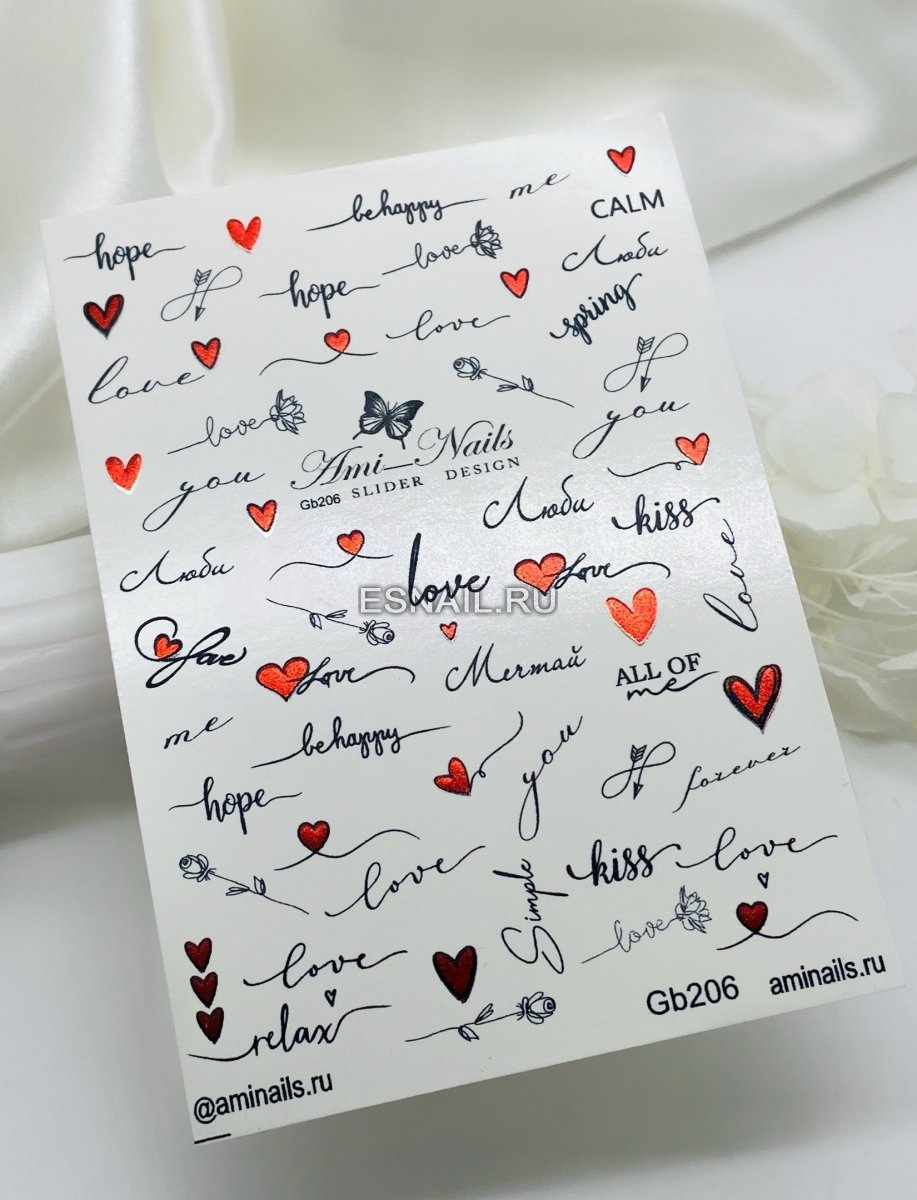 be happy me
CALM
hope
love
Люби
hope
spring
love
love
love
you
you
Ami-Nails
Gb206 SLIDER DESIGN
Люби
kiss
Люби
love
Love
love
ESNAIL.RU
Love
Love
Мечтай
ALL OF
me
me
be happy
you
forever
hope
kiss
love
love
Simple
love
love
relax
Gb206 aminails.ru
@aminails.ru